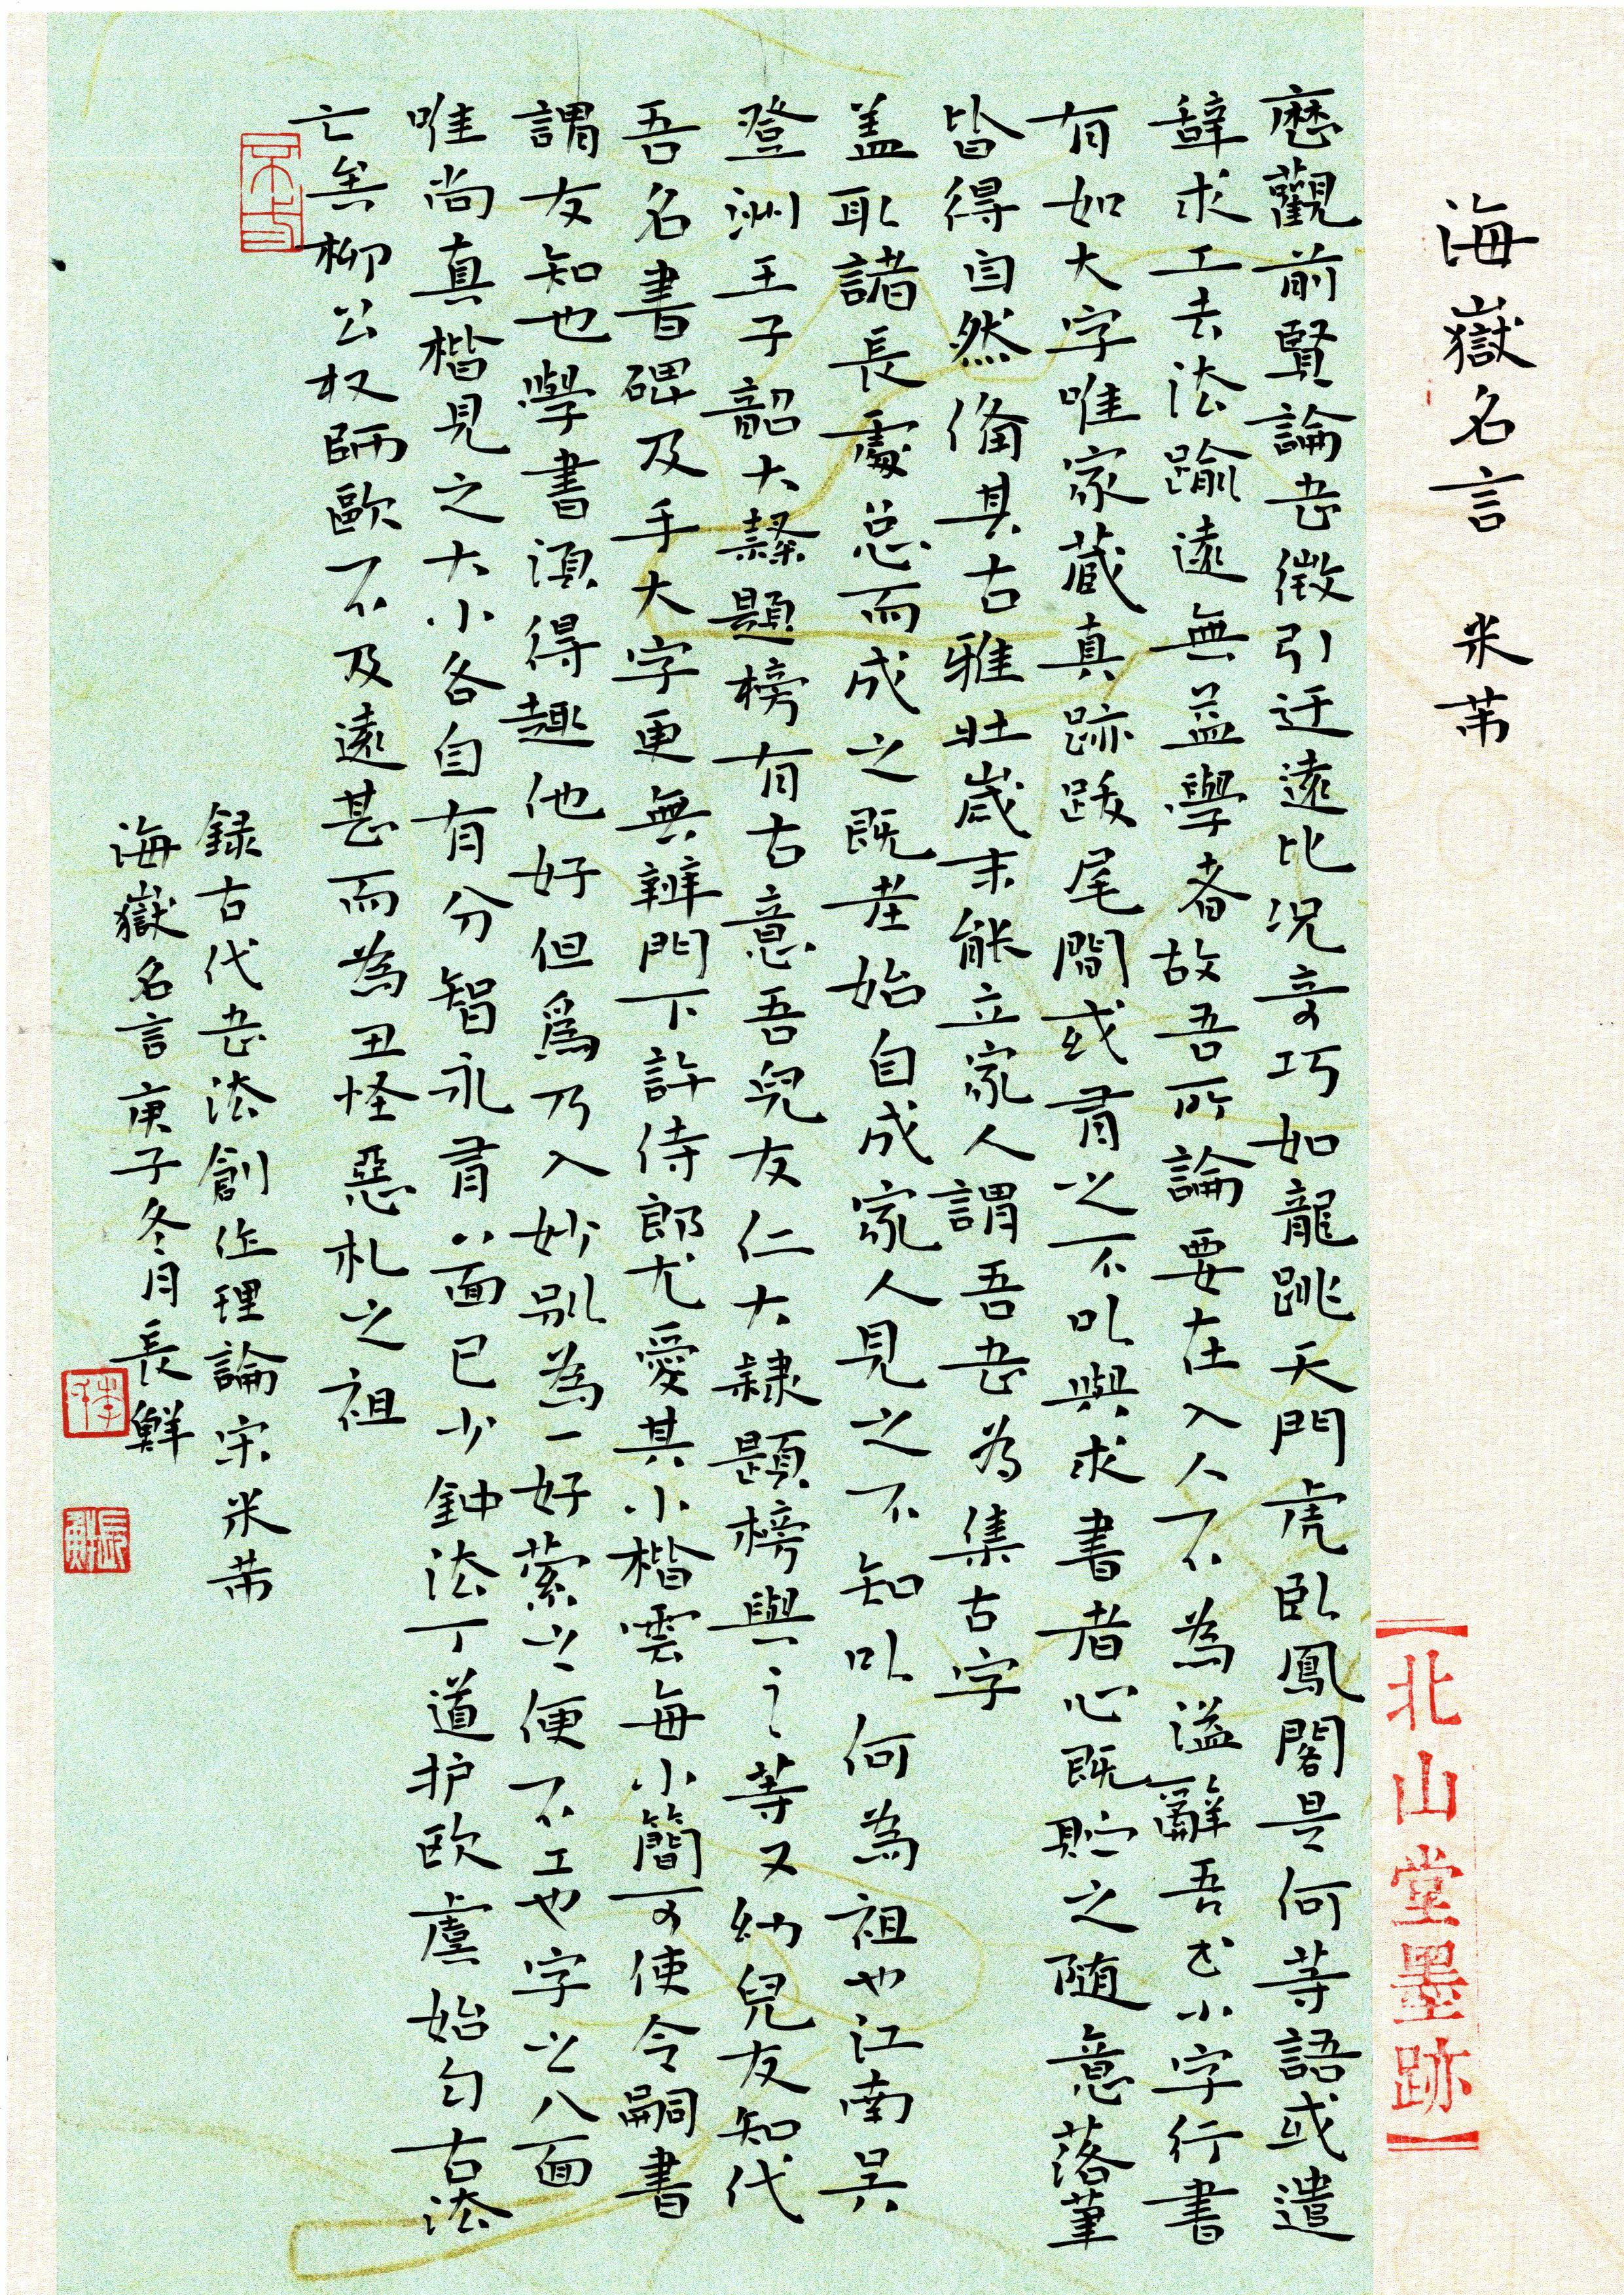 海嶽名言 米芾
北山堂墨跡
歷觀前賢論书徵引迂遠比况奇巧如龍跳天門虎臥鳳閣是何等語或遣
辭求工去法踰遠無益學者故吾所論要在入人不為溢辭吾书小字行書
有如大字唯家藏真跡跋尾間或有之不以與求書者心既貯之随意落筆
皆得自然備其古雅壯歲未能立家人謂吾书為集古字
盖取諸長處总而成之既老始自成家人見之不知以何為祖也江南吴
登洲王子韶大隸題榜有古意吾兒友仁大隸題榜與之等又幼兒友知代
吾名書碑及手大字更無辨門下許侍郎尤愛其小楷雲每小簡可使令嗣書
謂友知也學書須得趣他好但為乃入妙别為一好縈之便不工也字之八面
唯尚真楷見之大小各自有分智永有八面已少鍾法丁道护欧虞始匀古法
亡矣柳公权師歐不及遠甚而為丑怪惡札之祖
録古代书法創作理論宋米芾
海嶽名言庚子冬月長鮮